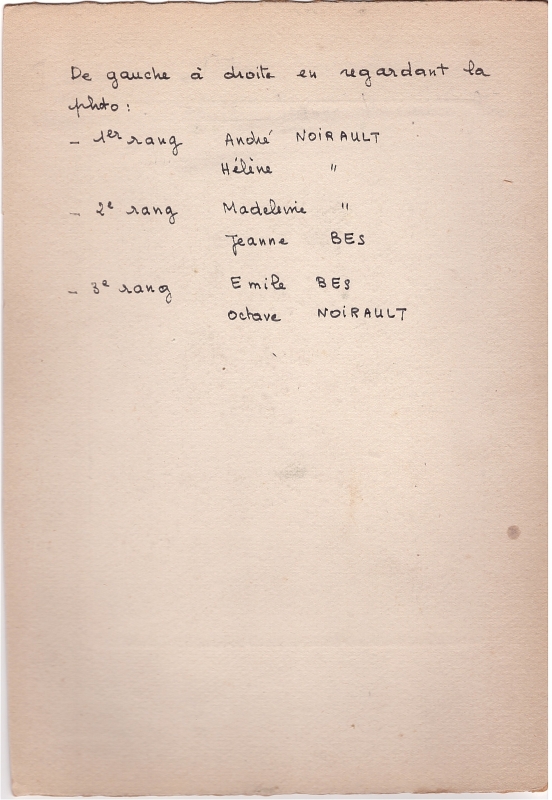 De gauche à droite en regardant la
photo :
- 1er rang André NOIRAULT
Hélène "
- 2e rang Madeleine "
Jeanne BES
- 3e rang Emile BES
Octave NOIRAULT